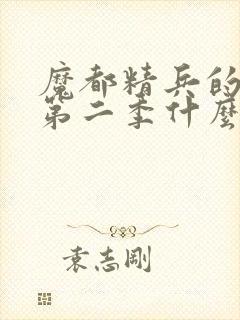 魔都精兵的
第二季什麼
袁志剛